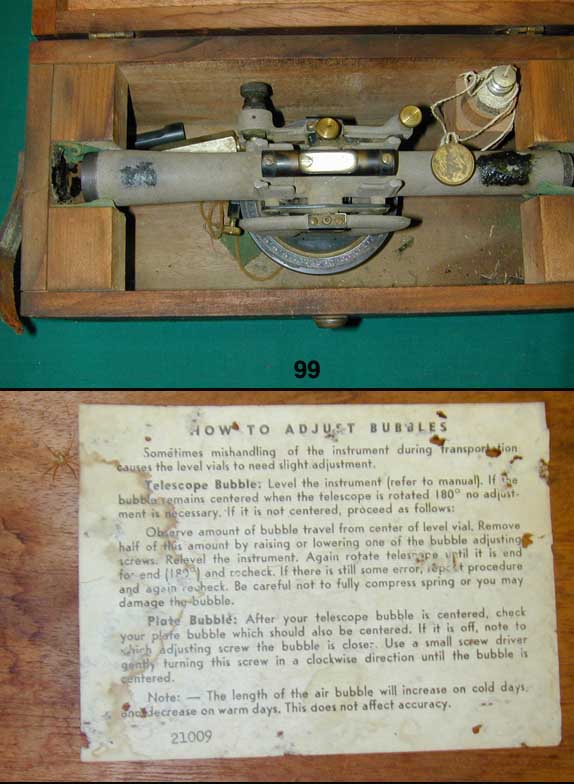 99
HOW TO ADJUST BUBBLES
Sometimes mishandling of the instrument during transportation
causes the level vials to need slight adjustment.
Telescope Bubble: Level the instrument (refer to manual). If the
bubble remains centered when the telescope is rotated 180° no adjust-
ment is necessary. If it is not centered, proceed as follows:
Observe amount of bubble travel from center of level vial. Remove
half of this amount by raising or lowering one of the bubble adjusting
screws. Relevel the instrument. Again rotate telescope until it is end
for end (180°) and recheck. If there is still some error, repeat procedure
and again recheck. Be careful not to fully compress spring or you may
damage the bubble.
Plate Bubble: After your telescope bubble is centered, check
your plate bubble which should also be centered. If it is off, note to
which adjusting screw the bubble is closer. Use a small screw driver
gently turning this screw in a clockwise direction until the bubble is
centered.
Note: — The length of the air bubble will increase on cold days
and decrease on warm days. This does not affect accuracy.
21009